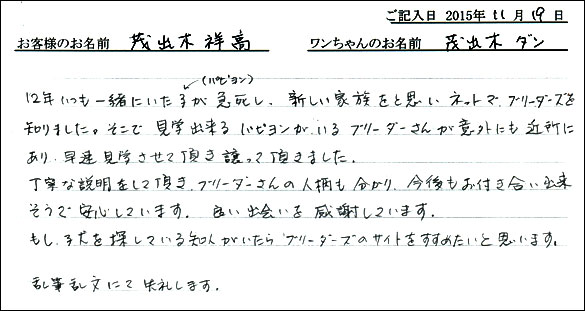 ご記入日 2015年 11月 19日
お客様のお名前 茂出木 祥高 ワンちゃんのお名前 茂出木 ダン
(パピヨン)
12年いつも一緒にいた子が急死し、新しい家族をと思いネットで、ブリーダーズを
知りました。そこで見学出来るパピヨンがいるブリーダーさんが意外にも近所に
あり、早速見学させて頂き譲って頂きました。
丁寧な説明をして頂き、ブリーダーさんの人柄も分かり、今後もお付き合い出来
そうで安心しています。良い出会いを感謝しています。
もし、子犬を探している知人がいたらブリーダーズのサイトをすすめたいと思います。
乱筆乱文にて失礼します。